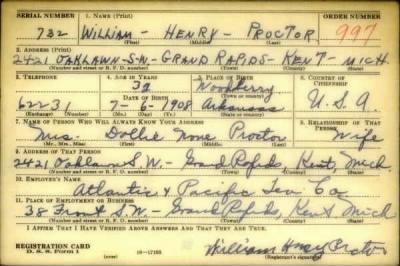 SERIAL NUMBER 1. NAME (Print) ORDER NUMBER
732 WILLIAM - HENRY - PROCTOR 997
(First) (Middle) (Last)
2. ADDRESS (Print)
2421 OAKLAWN-S.W- GRAND RAPIDS- KENT- MICH
(Number and street or R. F. D. number) (Town) (County) (State)
3. TELEPHONE 4. AGE IN YEARS 5. PLACE OF BIRTH 6. COUNTRY OF CITIZENSHIP
32 Woodberry
DATE OF BIRTH (Town or county)
62231 7-6-1908 Arkansas U.S.A
(Mo.) (Day) (Yr.) (State or country)
7. NAME OF PERSON WHO WILL ALWAYS KNOW YOUR ADDRESS 8. RELATIONSHIP OF THAT PERSON
Mrs. Dollie Proctor Wife
(Mr., Mrs., Miss) (First) (Middle) (Last)
9. ADDRESS OF THAT PERSON
2421 Oaklawn S.W- Grand Rapids, Kent Mich
(Number and street or R. F. D. number) (Town) (County) (State)
10. EMPLOYER'S NAME
Atlantic & Pacific Tea Co
11. PLACE OF EMPLOYMENT OR BUSINESS
38 Front S.W- Grand Rapids, Kent Mich
(Number and street or R. F. D. number) (Town) (County) (State)
I AFFIRM THAT I HAVE VERIFIED ABOVE ANSWERS AND THAT THEY ARE TRUE.
REGISTRATION CARD
D. S. S. Form 1 16-17105 William Henry Proctor
(Registrant's signature)